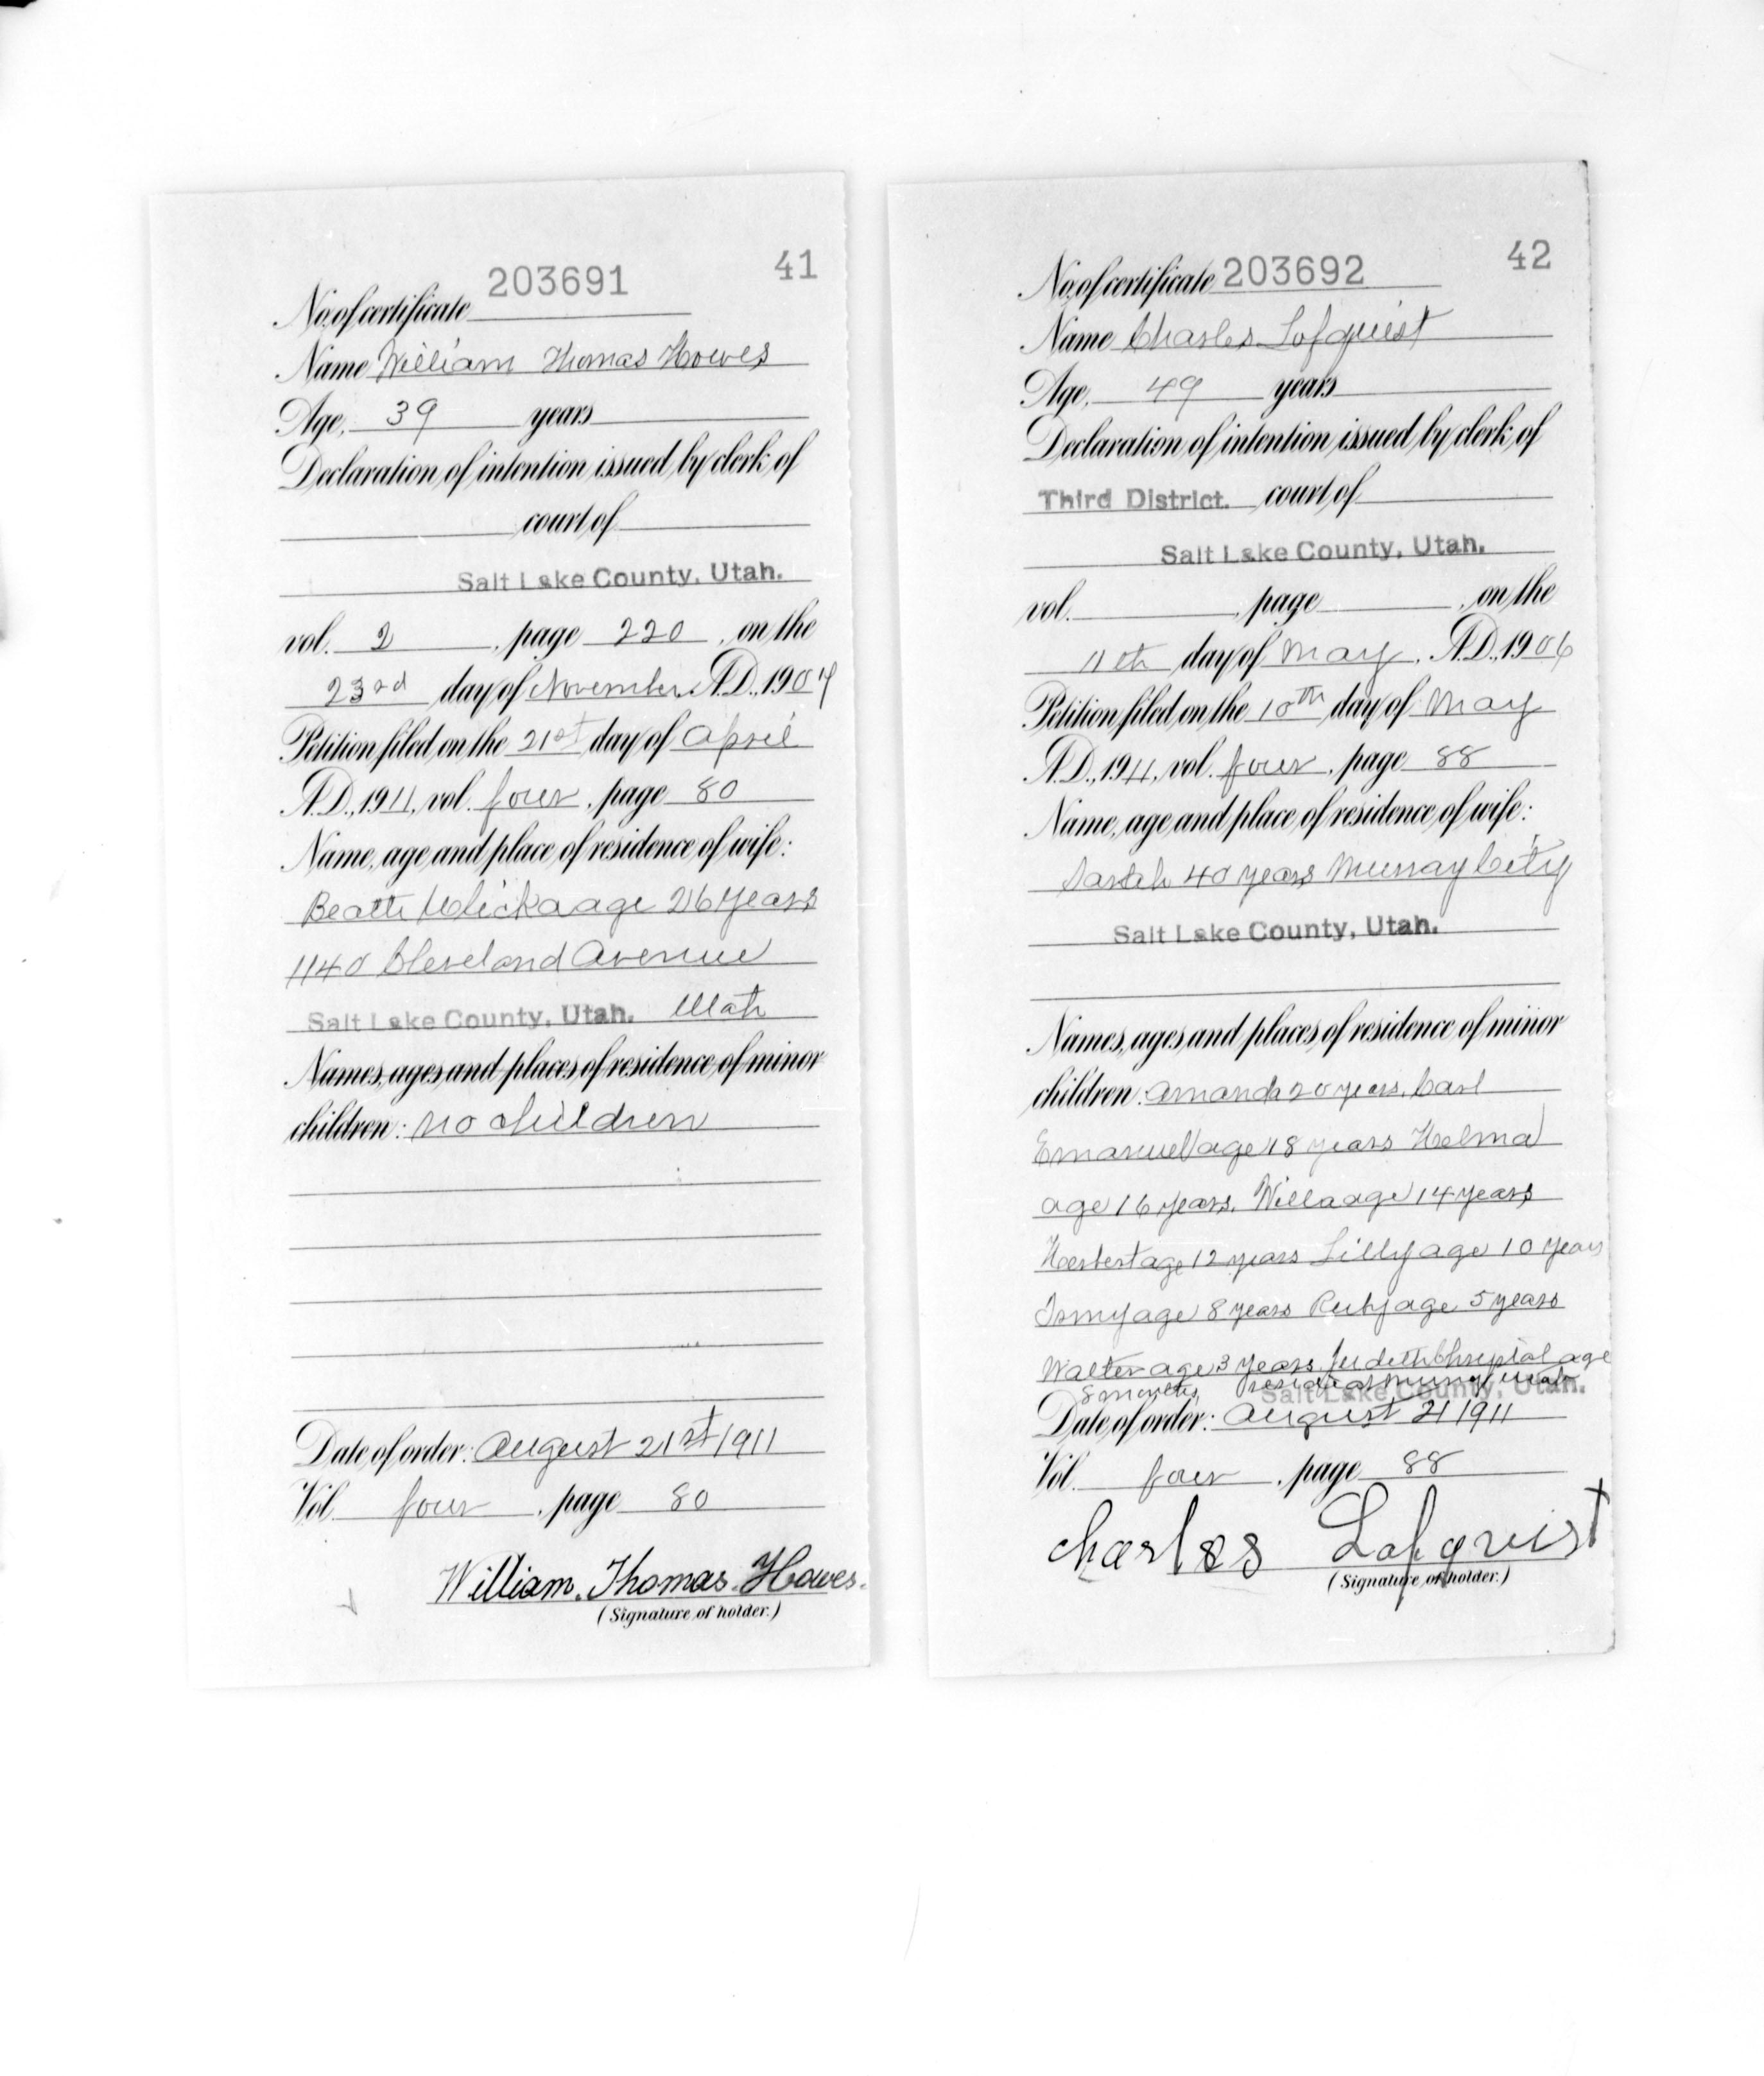 41
No. of certificate 203691
Name William Thomas Howes
Age, 39 years
Declaration of intention issued by clerk of
court of
Salt Lake County, Utah.
vol. 2, page 220, on the
23rd day of November, A.D., 1907
Petition filed on the 21st day of April
A.D., 1911, vol. four, page 80
Name, age and place of residence of wife:
age 26 years
1140 Cleveland Avenue
Salt Lake County, Utah. Utah
Names, ages and places of residence of minor
children: no children
Date of order: August 21st 1911
Vol. four, page 80
William. Thomas. Howes.
(Signature of holder.)
42
No. of certificate 203692
Name Charles Lofquist
Age, 49 years
Declaration of intention issued by clerk of
Third District. court of
Salt Lake County, Utah.
vol. , page , on the
11th day of May, A.D., 1906
Petition filed on the 10th day of May
A.D., 1911, vol. four, page 88
Name, age and place of residence of wife:
40 years Murray City
Salt Lake County, Utah.
Names, ages and places of residence of minor
children: Amanda 20 years, Carl
Emanuel age 18 years Helma
age 16 years, Willa age 14 years
Herbert age 12 years Lilly age 10 years
age 8 years Ruby age 5 years
Walter age 3 years Judeth age
8 months, Salt Lake County, Utah.
Date of order: August 21 1911
Vol. four, page 88
Charles Lofquist
(Signature of holder.)